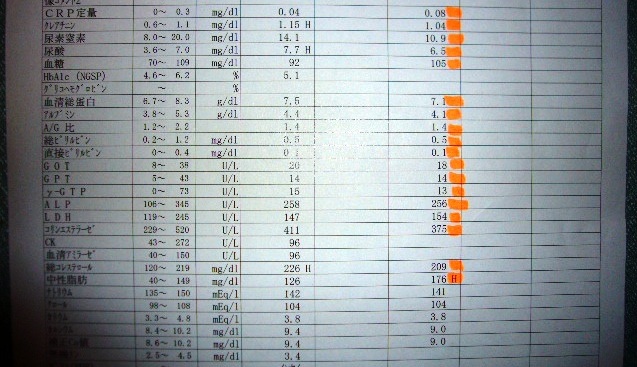 CRP定量 0~ 0.3 mg/dl 0.04 0.08
クレアチニン 0.6~ 1.1 mg/dl 1.15 H 1.04
尿素窒素 8.0~ 20.0 mg/dl 14.1 10.9
尿酸 3.6~ 7.0 mg/dl 7.7 H 6.5
血糖 70~ 109 mg/dl 92 105
HbA1c (NGSP) 4.6~ 6.2 % 5.1
グリコヘモグロビン ~ %
血清総蛋白 6.7~ 8.3 g/dl 7.5 7.1
アルブミン 3.8~ 5.3 g/dl 4.4 4.1
A/G 比 1.2~ 2.2 1.4 1.4
総ビリルビン 0.2~ 1.2 mg/dl 0.5 0.5
直接ビリルビン 0~ 0.4 mg/dl 0.1 0.1
GOT 8~ 38 U/L 20 18
GPT 5~ 43 U/L 14 14
γ-GTP 0~ 73 U/L 15 13
ALP 106~ 345 U/L 258 256
LDH 119~ 245 U/L 147 154
コリンエステラーゼ 229~ 520 U/L 411 375
CK 43~ 272 U/L 96
血清アミラーゼ 40~ 150 U/L 96
総コレステロール 120~ 219 mg/dl 226 H 209
中性脂肪 40~ 149 mg/dl 126 176 H
ナトリウム 135~ 150 mEq/l 142 141
98~ 108 mEq/l 104 104
3.3~ 4.8 mEq/l 3.8 3.8
8.4~ 10.2 mg/dl 9.4 9.0
8.6~ 10.2 mg/dl 9.4 9.0
2.5~ 4.5 mg/dl 3.4